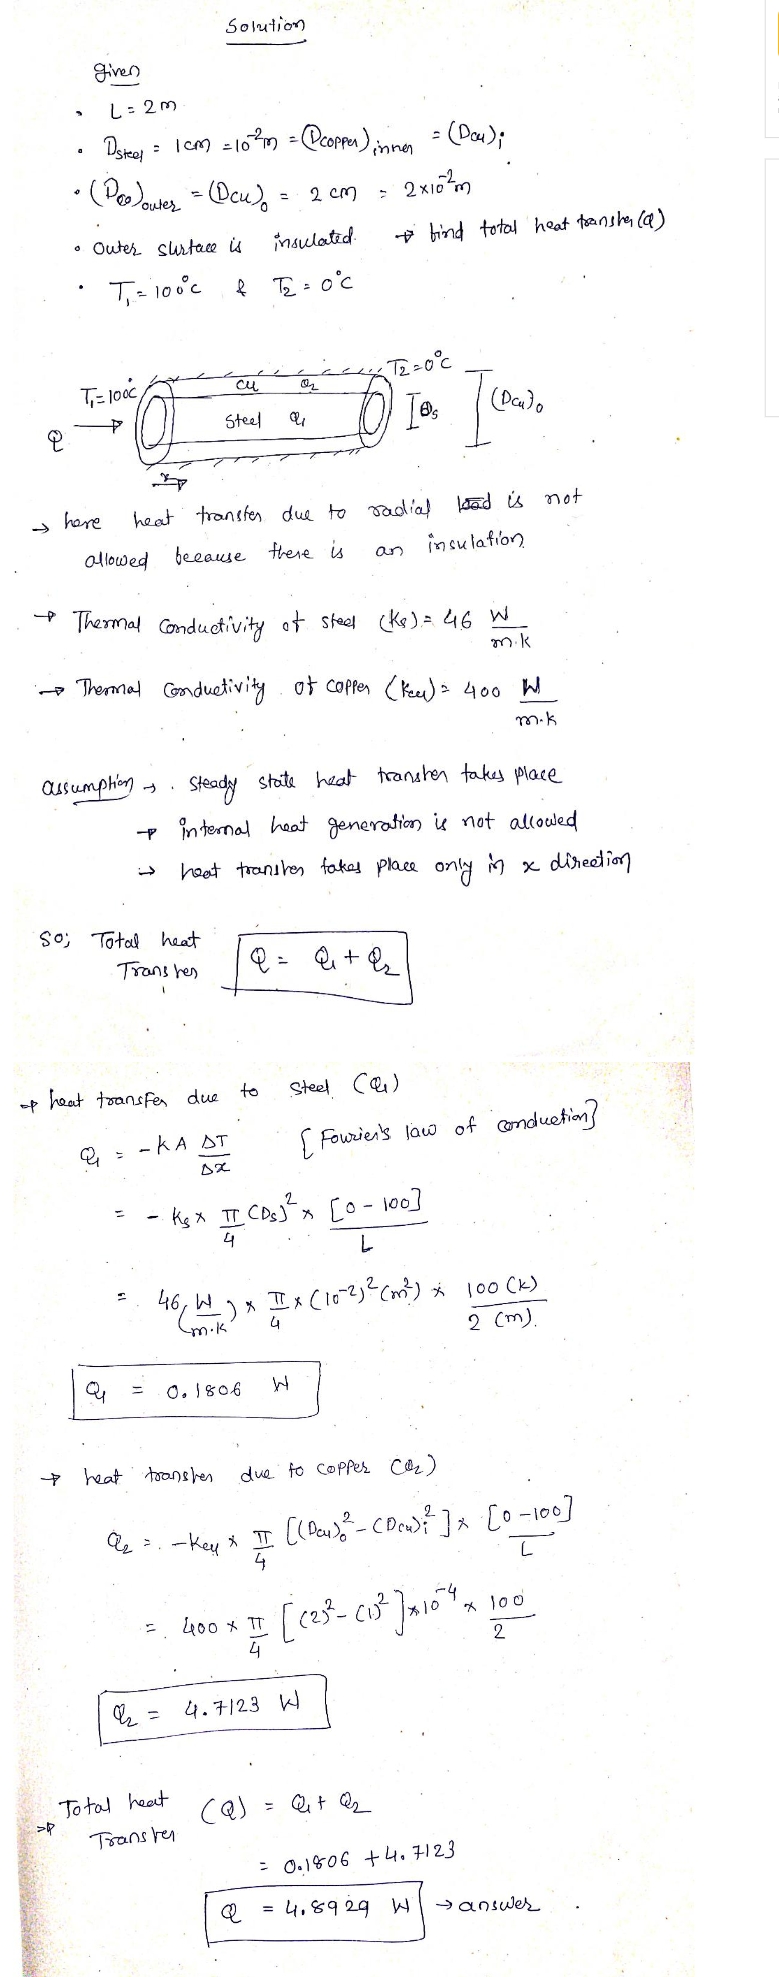 Solution
given
• L = 2m
• Dsteel = 1cm = 10⁻²m = (Dcopper)inner = (Dcu)i
• (Dco)outer = (Dcu)o = 2 cm = 2×10⁻²m
• outer surface is insulated. → find total heat transfer (Q)
• T₁ = 100°C & T₂ = 0°C
T₁=100°C cu Q₂ T₂=0°C
Q Steel Q₁ Ds (Dcu)o
x
→ here heat transfer due to radial load is not
allowed because there is an insulation.
→ Thermal conductivity of steel (Ks) = 46 W/m.K
→ Thermal conductivity of copper (Kcu) = 400 W/m.K
assumption → . Steady state heat transfer takes place
→ internal heat generation is not allowed
→ heat transfer takes place only in x direction
So; Total heat
Transfer Q = Q₁ + Q₂
→ heat transfer due to Steel (Q₁)
Q₁ = -KA ΔT/Δx [Fourier's law of conduction]
= - Ks × π/4 (Ds)² × [0-100]/L
= 46 (W/m.K) × π/4 × (10⁻²)² (m²) × 100 (K)/2 (m).
Q₁ = 0.1806 W
→ heat transfer due to copper (Q₂)
Q₂ = -Kcu × π/4 [(Dcu)o² - (Dcu)i²] × [0-100]/L
= 400 × π/4 [(2)² - (1)²] × 10⁻⁴ × 100/2
Q₂ = 4.7123 W
⇒ Total heat
Transfer (Q) = Q₁ + Q₂
= 0.1806 + 4.7123
Q = 4.8929 W → answer.